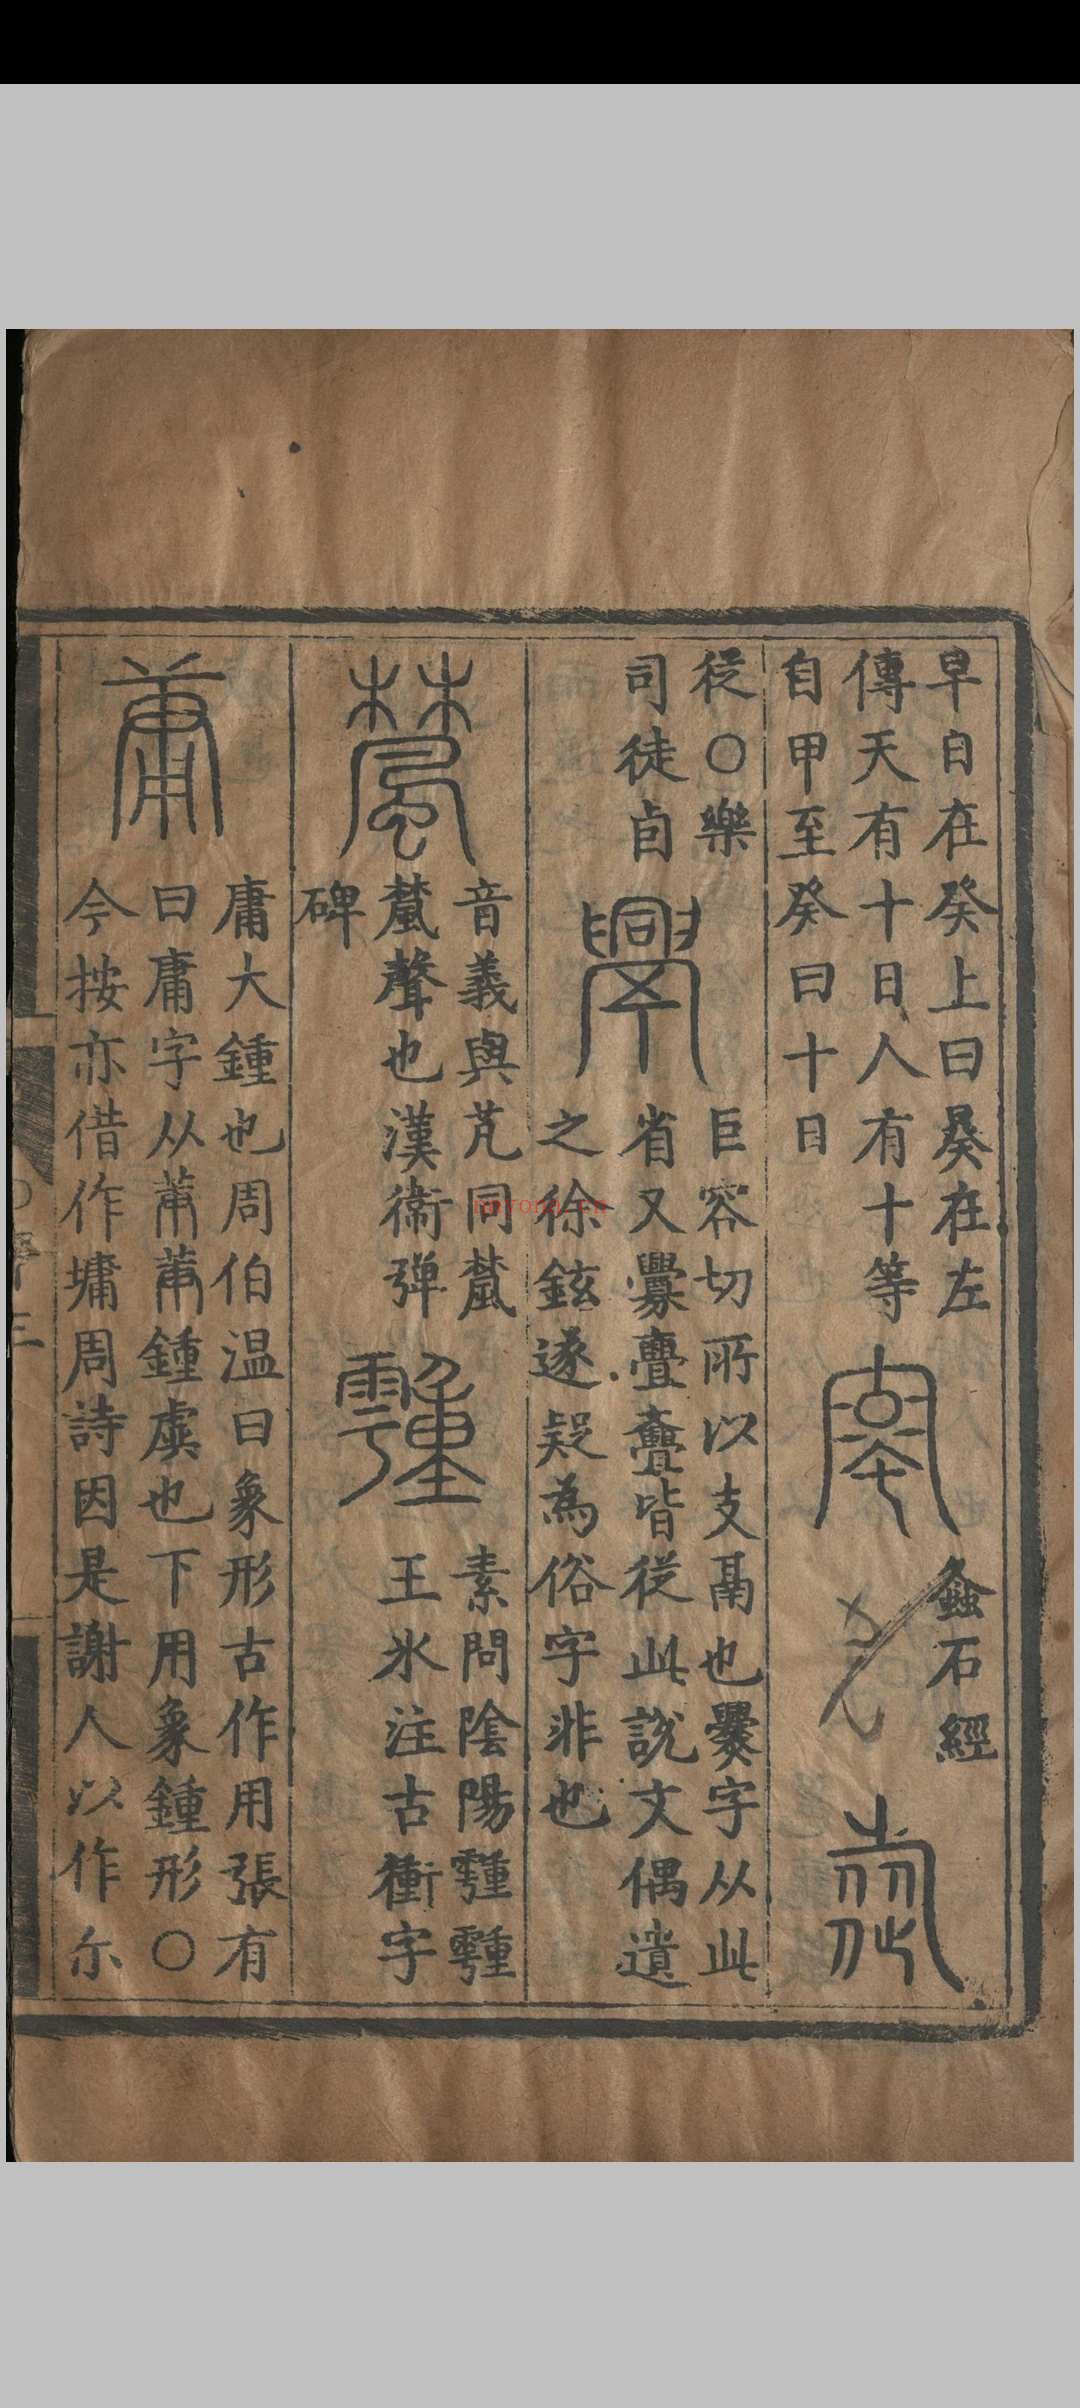 早日在癸上曰癸在左
傳天有十日人有十等
自甲至癸曰十日
螽石經
從〇樂
司徒卣
巨容切所以支鬲也爨字从此
省又釁亹亹皆從此說文偶遺
之徐鉉遂疑為俗字非也
音義與芃同檒
檒聲也漢衞彈
碑
素問陰陽
王氷注古衝字
庸大鍾也周伯温曰象形古作用張有
曰庸字从鍾虡也下用象鍾形〇
今按亦借作墉周詩因是謝人以作尒
nnyona.cn